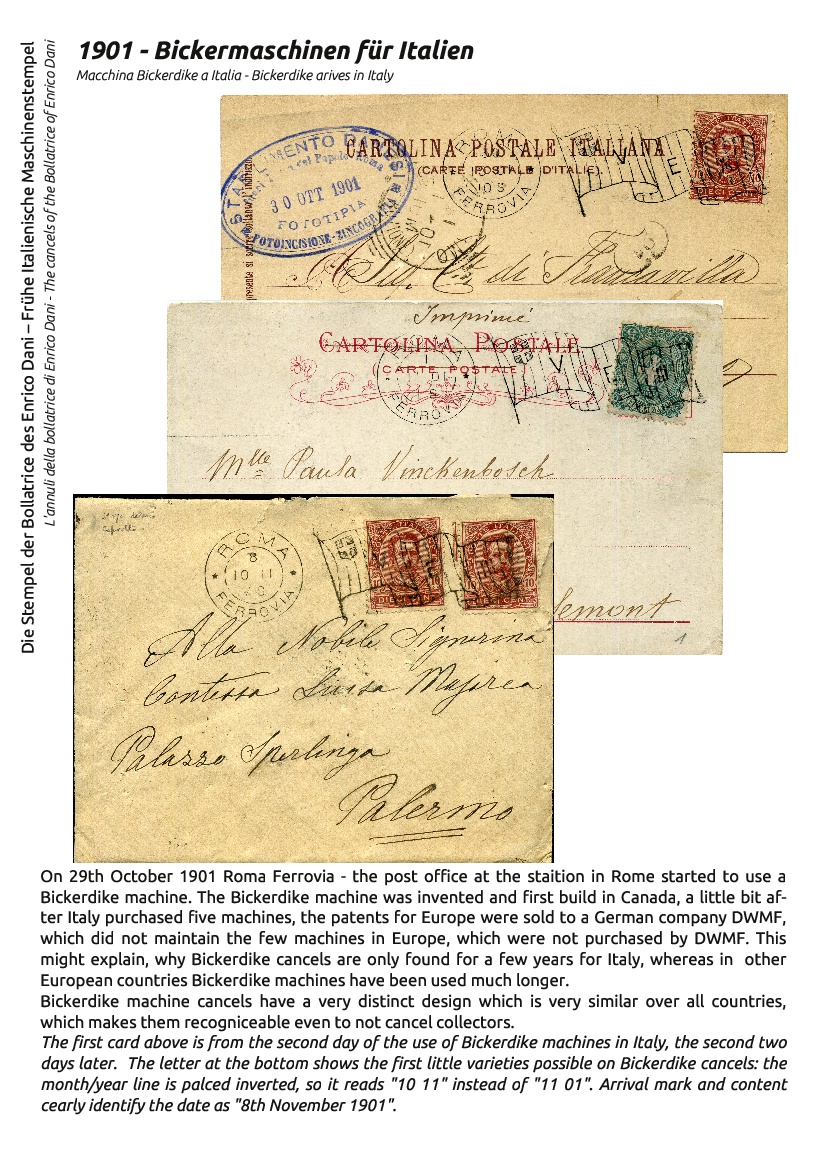 1901 - Bickermaschinen für Italien
Macchina Bickerdike a Italia - Bickerdike arives in Italy
Die Stempel der Bollatrice des Enrico Dani – Frühe Italienische Maschinenstempel
L'annuli della bollatrice di Enrico Dani - The cancels of the Bollatrice of Enrico Dani
CARTOLINA POSTALE ITALIANA
(CARTE POSTALE D'ITALIE).
30 OTT 1901
FOTOTIPIA
FOTOINCISIONE-ZINCOGRA
FERROVIA
V E
DIECI CENT
Imprimé
CARTOLINA POSTALE
(CARTE POSTALE)
FERROVIA
V E
Mlle Paula Vinckenbosch
ROMA
8
10 11
FERROVIA
DIECI CENT
Alla Nobile Signorina
Contessa Luisa Majorca
Palazzo Sperlinga
Palermo
1
On 29th October 1901 Roma Ferrovia - the post office at the staition in Rome started to use a
Bickerdike machine. The Bickerdike machine was invented and first build in Canada, a little bit af-
ter Italy purchased five machines, the patents for Europe were sold to a German company DWMF,
which did not maintain the few machines in Europe, which were not purchased by DWMF. This
might explain, why Bickerdike cancels are only found for a few years for Italy, whereas in other
European countries Bickerdike machines have been used much longer.
Bickerdike machine cancels have a very distinct design which is very similar over all countries,
which makes them recogniceable even to not cancel collectors.
The first card above is from the second day of the use of Bickerdike machines in Italy, the second two
days later. The letter at the bottom shows the first little varieties possible on Bickerdike cancels: the
month/year line is palced inverted, so it reads "10 11" instead of "11 01". Arrival mark and content
cearly identify the date as "8th November 1901".